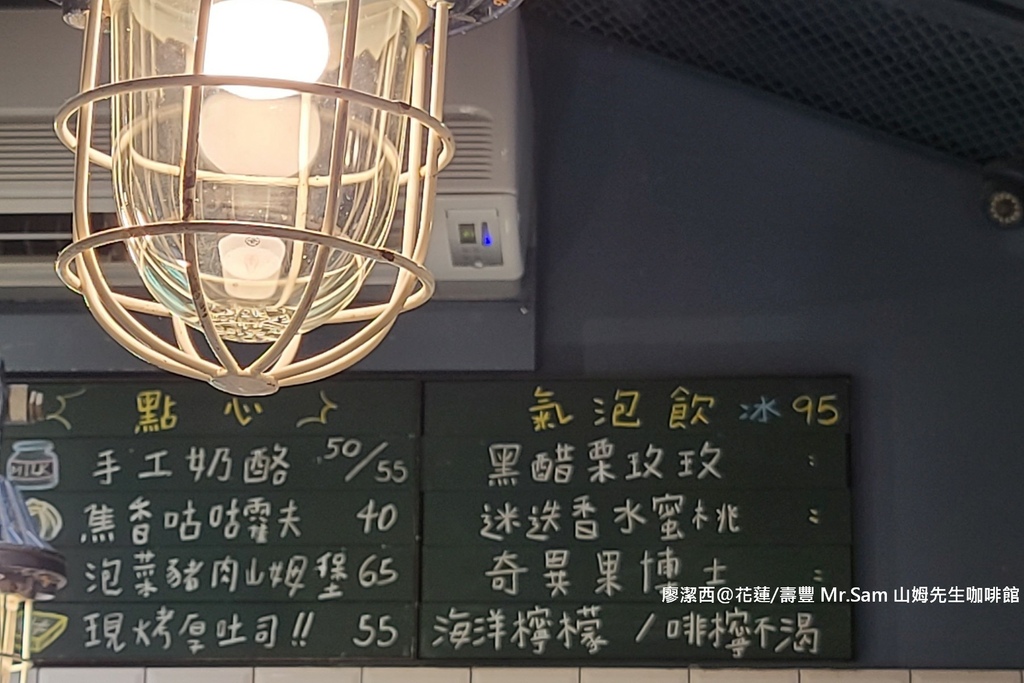 點心
MILK 手工奶酪 50/55
焦香咕咕霍夫 40
泡菜豬肉山姆堡 65
現烤厚吐司!! 55
氣泡飲 冰 95
黑醋栗玫玫 :
迷迭香水蜜桃 :
奇異果博士 :
海洋檸檬 / 啡檸不渴
廖潔西@花蓮/壽豐 Mr.Sam 山姆先生咖啡館